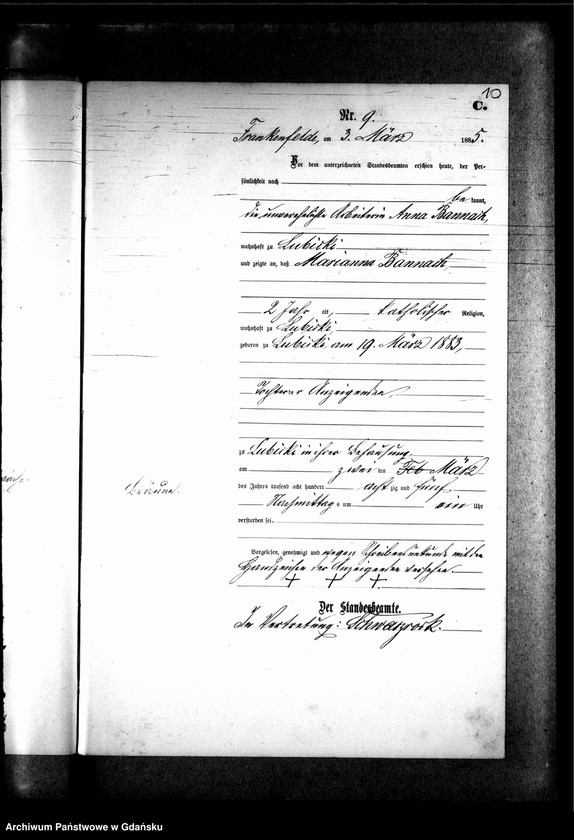 10
C.
Nr. 9.
Frankenfelde, am 3. März 1885.
Vor dem unterzeichneten Standesbeamten erschien heute, der Per-
sönlichkeit nach
be kannt,
die unverehelichte Arbeiterin Anna Bannach,
wohnhaft zu Lubicki
und zeigte an, daß Marianna Bannach
2 Jahr alt, katholischer Religion,
wohnhaft zu Lubicki,
geboren zu Lubicki, am 19. März 1883,
Tochter der Anzeigenden,
zu Lubicki in ihrer Behausung,
am zwei ten Feb März
des Jahres tausend acht hundert acht zig und fünf
Nachmittags um ein Uhr
verstorben sei.
Vorgelesen, genehmigt und wegen Schreibensunkunde mit den
Handzeichen der Anzeigenden versehen.
+ + +
Der Standesbeamte.
In Vertretung: Schwarzrock.
Bräune.
Archiwum Państwowe w Gdańsku